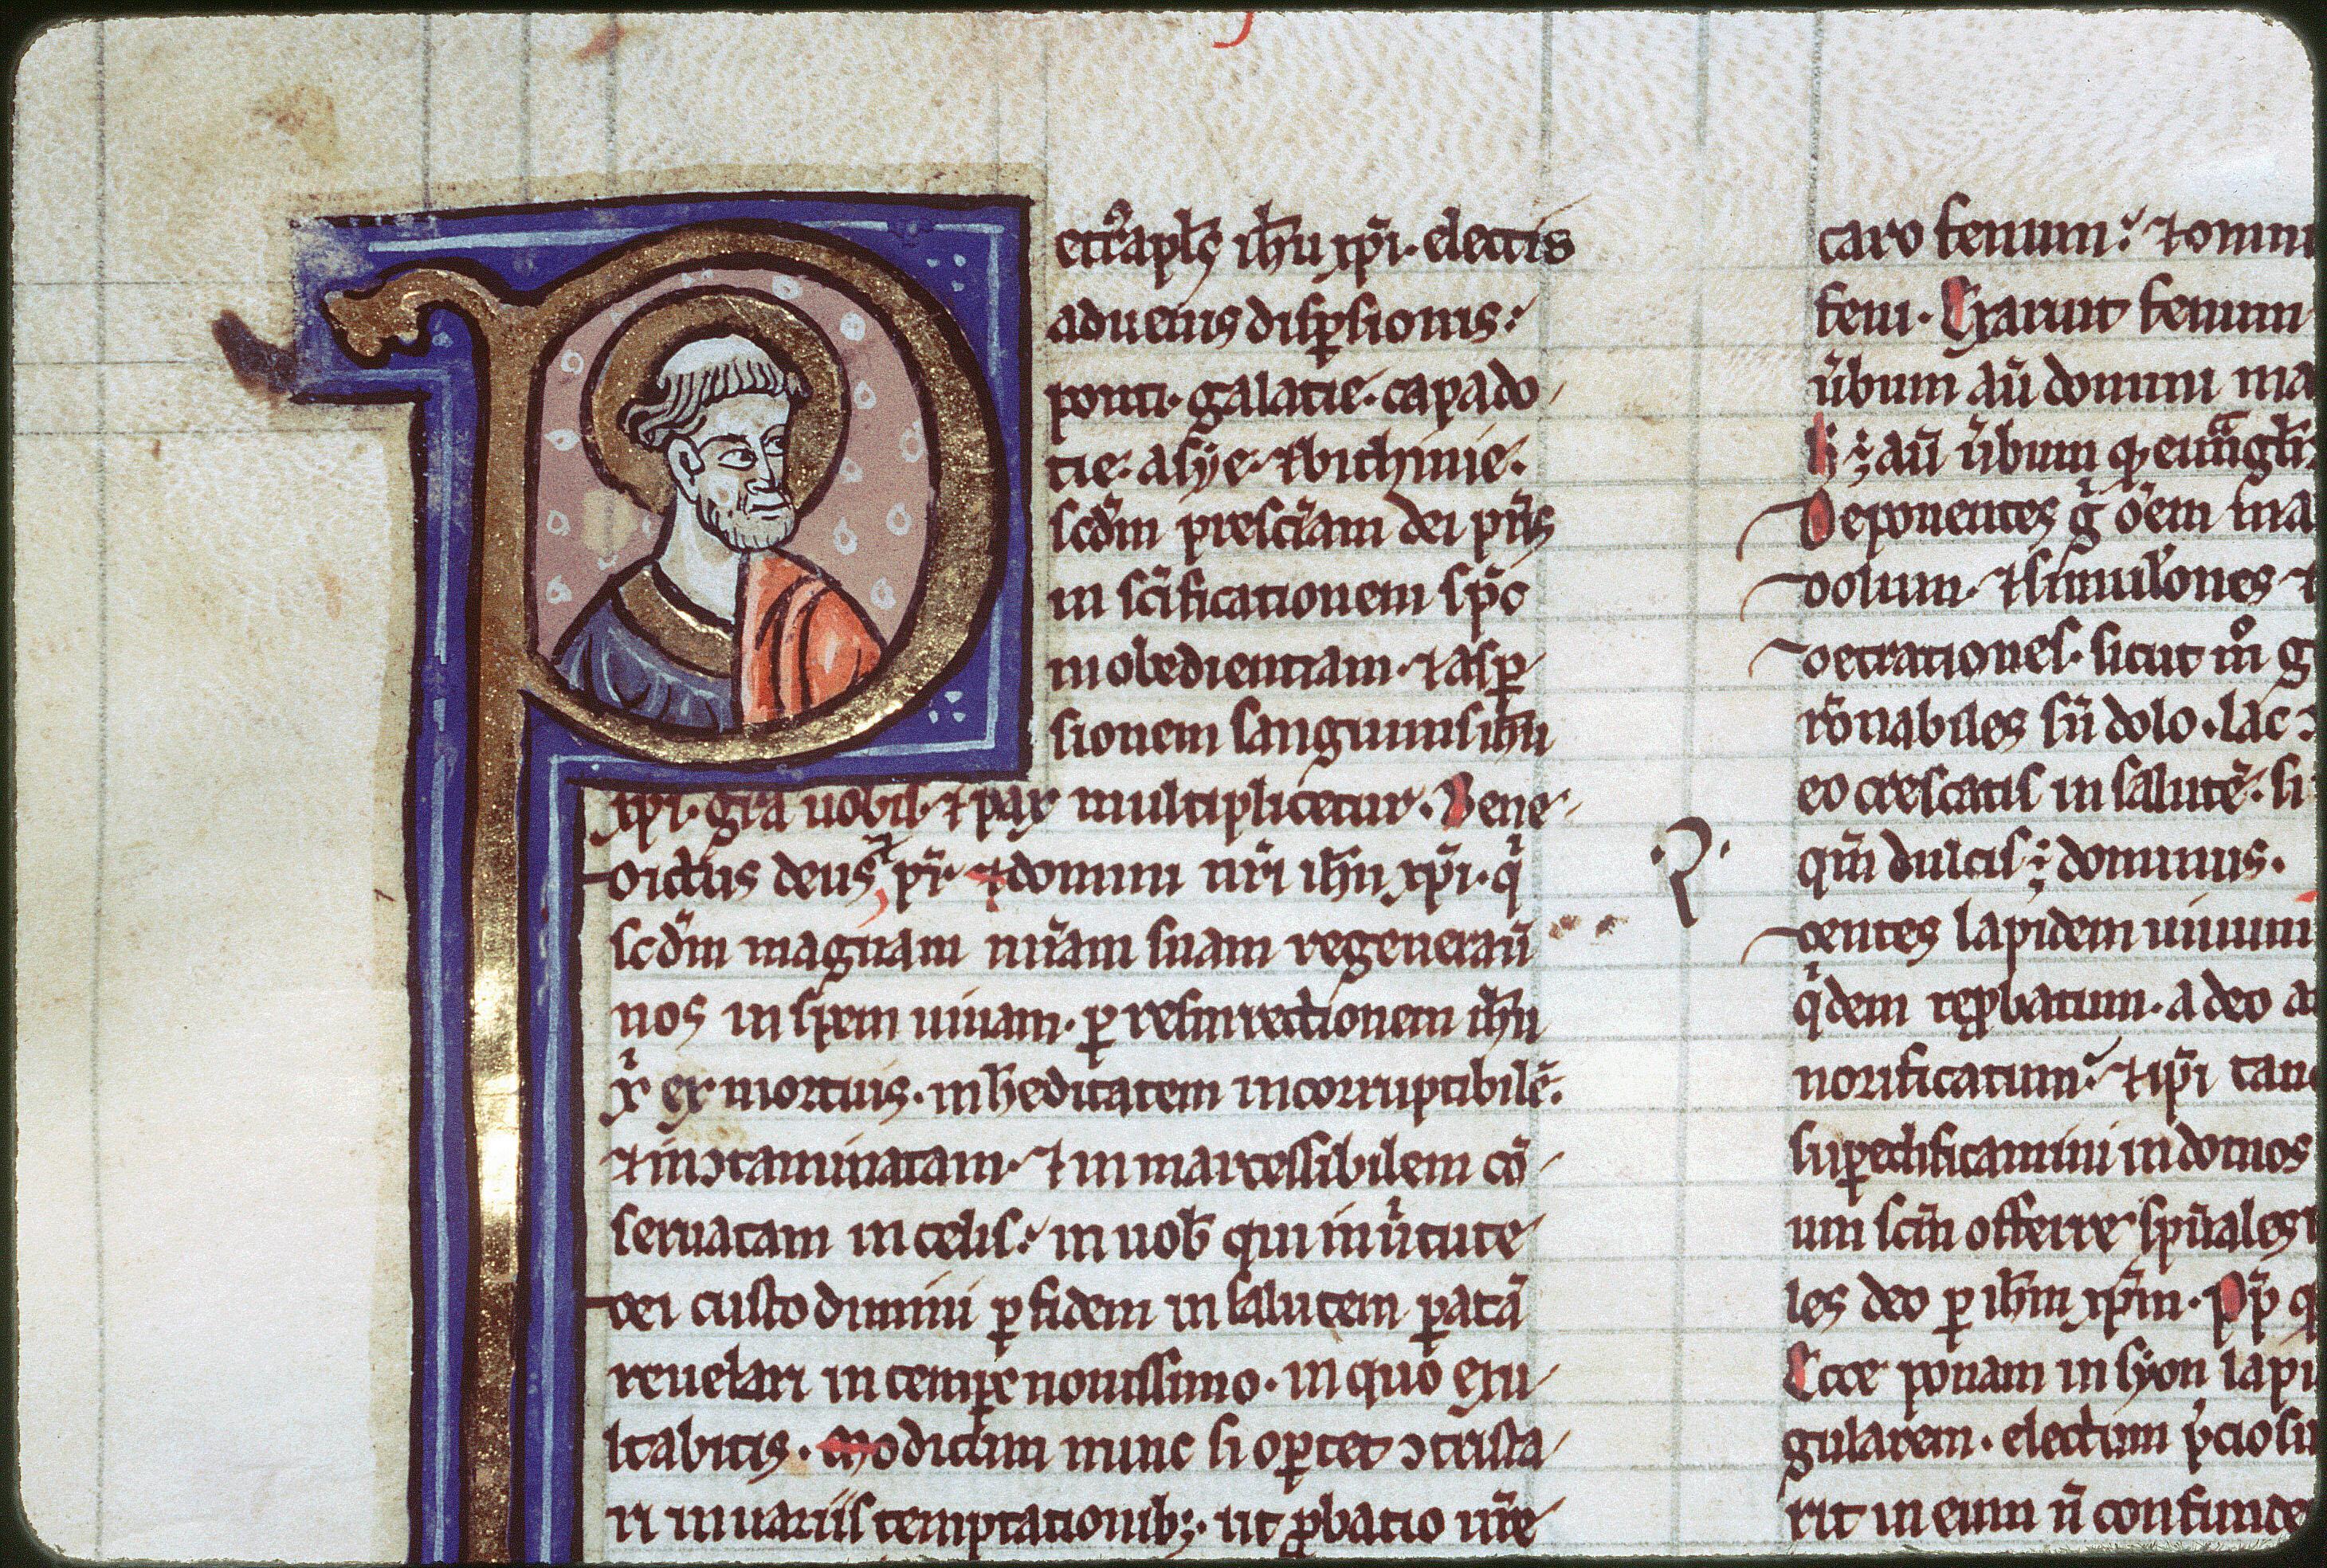 Petrˀ apl̃s ihũ xp̃i· electis
aduenis disꝑsionis·
ponti· galatie· capado
tie· asye· ⁊ bithinie·
scd̃m presc̃iam dei pr̃is
in sc̃ificationem sp̃c
in obedientiam· ⁊ asꝑ
sionem sanguinis ihũ
xp̃i· gr̃a uobis· ⁊ pax multiplicetur· Bene
dictus deus ⁊ pr̃ ⁊ domini nr̃i ihũ xp̃i· q̇
scd̃m magnam mĩam suam regenerauĩ
nos in spem uiuam· ꝑ resurrectionem ihũ
xı̃ ex mortuis· in h̃editatem incorruptibilẽ·
⁊ inↄtaminatam· ⁊ in marcessibilem cõ
seruatam in celis· in uob̃ qui in ũtute
dei custodimini ꝑ fidem in salutem ꝑatã
reuelari in temꝑe nouissimo· in quo exu
ltabitis· modicum nunc si oꝑtet ↄtrista
ri in uariis temptationibꝫ· ut ꝓbatio ur̃e
caro fenum· ⁊ omnı
feni· Exaruit fenum
ũbum aũ domini ma
h̃ ÷ aũ ũbum qͩ
Deponentes g̊ õem ma
dolum· ⁊ simulõnes ⁊
detrationes· sicut m̊ g
rõnabiles sñ dolo· lac
eo crescatis in salutẽ· si
qm̃ dulcis ÷ dominus·
dentes lapidem uiuum
q̇dem reꝓbatum· a deo
norificatum· ⁊ ip̃i tan
suꝑedificamini in domos
um sc̃m offerre sp̃uales
les deo ꝑ ihm̃ xp̃m· Pp̃ q
Ecce ponam in syon lapi
gularem· electum p̃ciosu
rit in eum ñ confunde
·R·